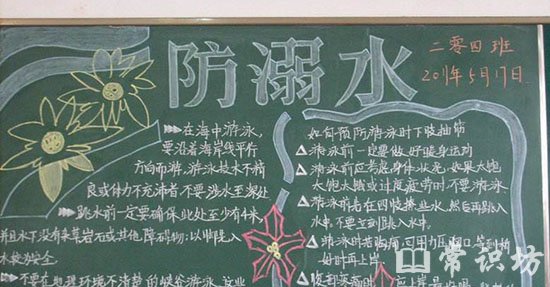 防溺水
二零四班
2011年5月17日
⇒在海中游泳,
要沿着海岸线平行
方向而游,游泳技术不精
良或体力不充沛者,不要涉水至深处
⇒跳水前一定要确保此处至少有4米,
并且水下没有杂草岩石或其他障碍物;以
⇒不要在地理环境不清楚的峡谷游泳,
如何预防游泳时下肢抽筋
▲游泳前一定要做好暖身运动
▲游泳前应考虑身体状况,如果太饱、
太饿或过度疲劳时不要游泳
▲游泳前先在四肢撩些水,然后再跳入
水中。不要立刻跳入水中。
▲游泳时如胸痛,可用力压胸口,等到稍
好时再上岸
常识坊